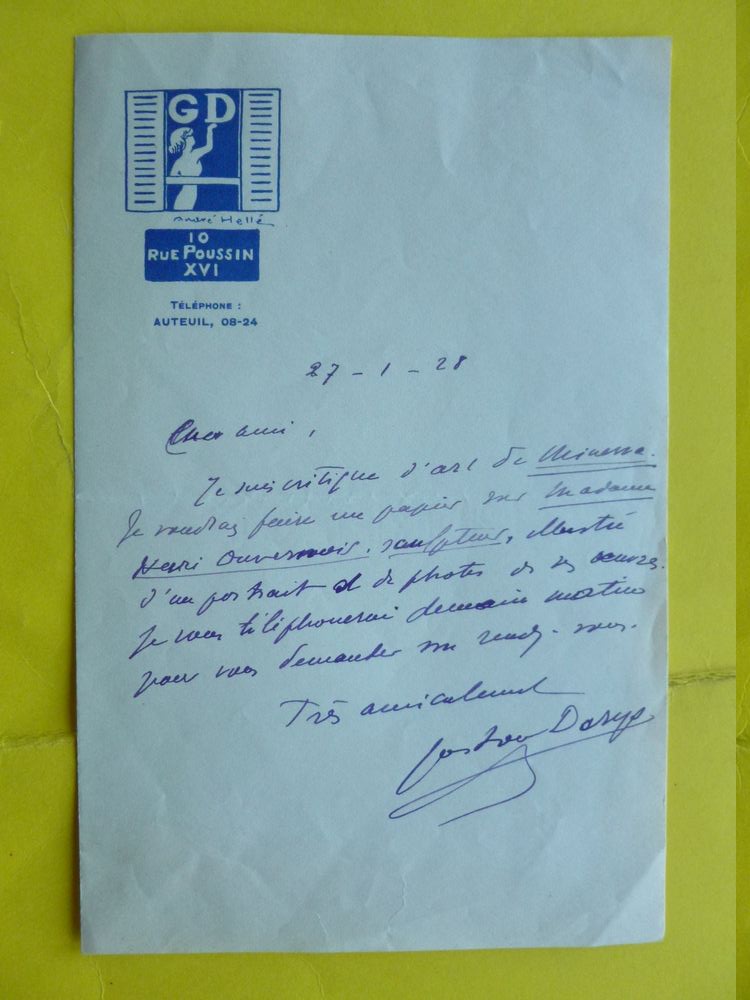 GD
André Hellé
10
RUE POUSSIN
XVI
TÉLÉPHONE :
AUTEUIL, 08-24
27 - 1 - 28
Cher ami,
Je suis critique d'art de Minerva.
Je voudrais faire un papier sur Madame
Henri Duvernois, sculpteur, illustré
d'un portrait et de photos de ses œuvres.
Je vous téléphonerai demain matin
pour vous demander un rendez-vous.
Très amicalement